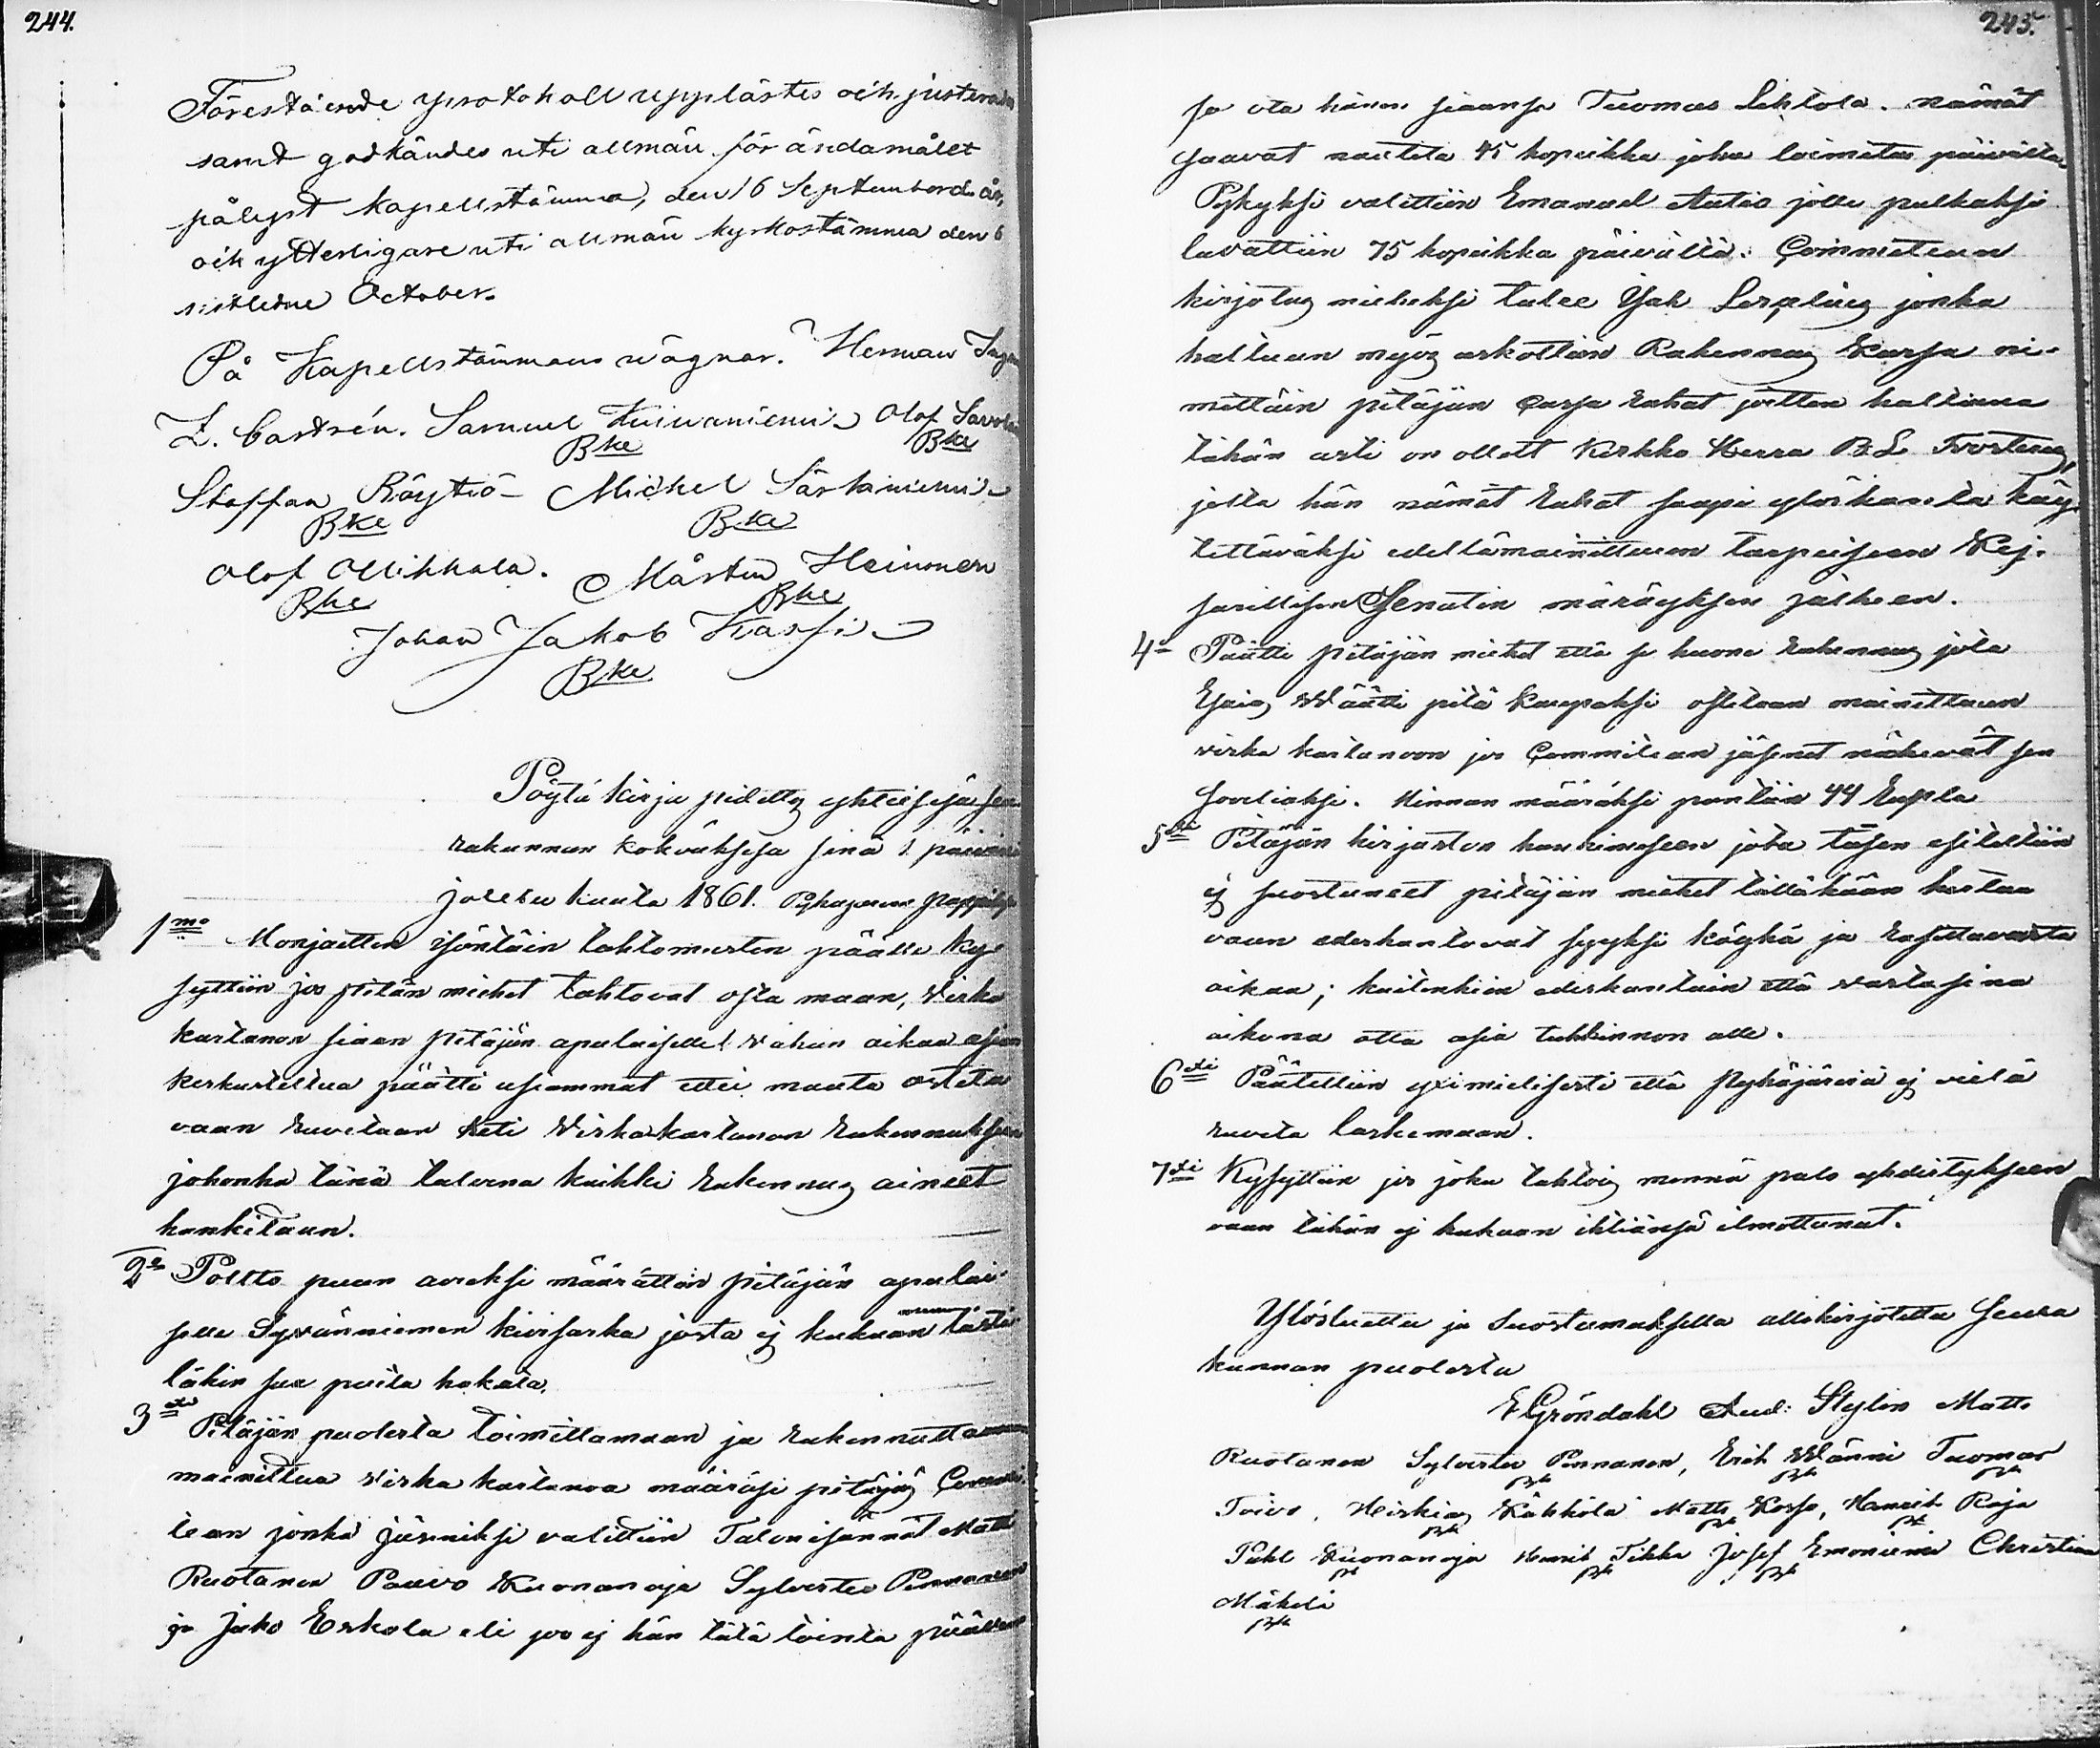 244.
Förestående protokoll upplästes och justerades
samt godkändes uti allmän för ändamålet
pålyst Kapellstämma, den 16 September d. år,
och ytterligare uti allmän kyrkostämma den 6
sistledne October.
På Kapellstämmans wägnar. Herman
Z. Castrén. Samuel Kuiwaniemi Olof
Bke Bke
Staffan Röytiö Michel Särkiniemi
Bke Bke
Olof Mikkala. Mårten Heinonen
Bke Bke
Johan Jakob Karsi
Bke
Pöytä kirja pidetty yhteisesä seu
rakunnan kokouksesa sinä 1 päivänä
joulu kuuta 1861. Pyhäjärven pappilasa
1mo Monjaitten isäntäin tahtomusten päälle ky
syttiin jos pitän miehet tahtovat osta maan, Virka
kartanon siaan pitäjän apulaiselle! vähän aikaa asian
keskusteltua päätti usiammat ettei maata osteta
vaan ruvetaan heti Virkakartanon rakennuksen
johonka tänä talvena kaikki rakennus aineet
hankitaan.
2o Poltto puun avuksi määrättiin pitäjän apulai
selle Syvänniemen kiirsarka josta ej kukaan tästä
lähin saa puita hakata.
3o Pitäjän puolesta toimittamaan ja rakennuttamaan
mainittua virka kartanoa määräsi pitäjä Commi
tean jonka jäseniksi valittiin Talonisännät Matti
Ruotanen Paavo Kuonanoja Sylvester Pennanen
ja Jako Eskola eli jos ej hän tätä tointa päällensä
245.
se ota hänen siaansa Tuomas Lehtola. nämät
saavat nautita 45 kopeikka joka toimitus päivältä,
Pykyksi valittiin Emanuel Autio jolle palkaksi
luvattiin 75 kopeikka päivältä: Commitean
kirjotus mieheksi tulee Isak Serpling jonka
haltuun myös uskottiin Rakennus Kassa ni-
mittäin pitäjän Cassa rahat joitten haltiana
tähän asti on ollut Kirkko Herra B. L. Frosterus,
jolta hän nämät rahat saapi ylöskantaa käy-
tettäväksi edellämainittuun tarpeiseen Kej-
sarillisen Senatin määräyksen jälkeen.
4o Päätti pitäjän miehet että se huone rakennus jota
Esaias Wäätti pitä kaupaksi ostetaan mainittuun
virka kartanoon jos Commitean jäsenet näkevät sen
soveliaksi. Hinnan määräksi pantiin 44 Rupla
5ti Pitäjän kirjaston hankimiseen jota täsen esiteltiin
ej suostuneet pitäjän miehet tälläkään kertaa
vaan edeskantovat syyksi köyhä ja rasittavaista
aikaa; kuitenkin edeskantain että vastasina
aikona otta asia tutkinnon alle.
6ti Päätettiin yximielisesti että Pyhäjärviä ej vielä
ruveta laskemaan.
7ti Kysyttiin jos joku tahtois mennä palo yhdistykseen
vaan tähän ej kukaan ihtiänsä ilmottanut.
Ylösluettu ja suostumuksella allekirjotettu seura
kunnan puolesta
E Gröndahl And: Stylin Matts
Ruotanen Sylvester Pennanen, Erik Wänni Tuomas
Toivo, Heikki Kähkölä Matts Kosso, Henrik Raja
Pahl Kuonanoja Henrik Tikka Josef Emoniemi Christian
Mäkelä